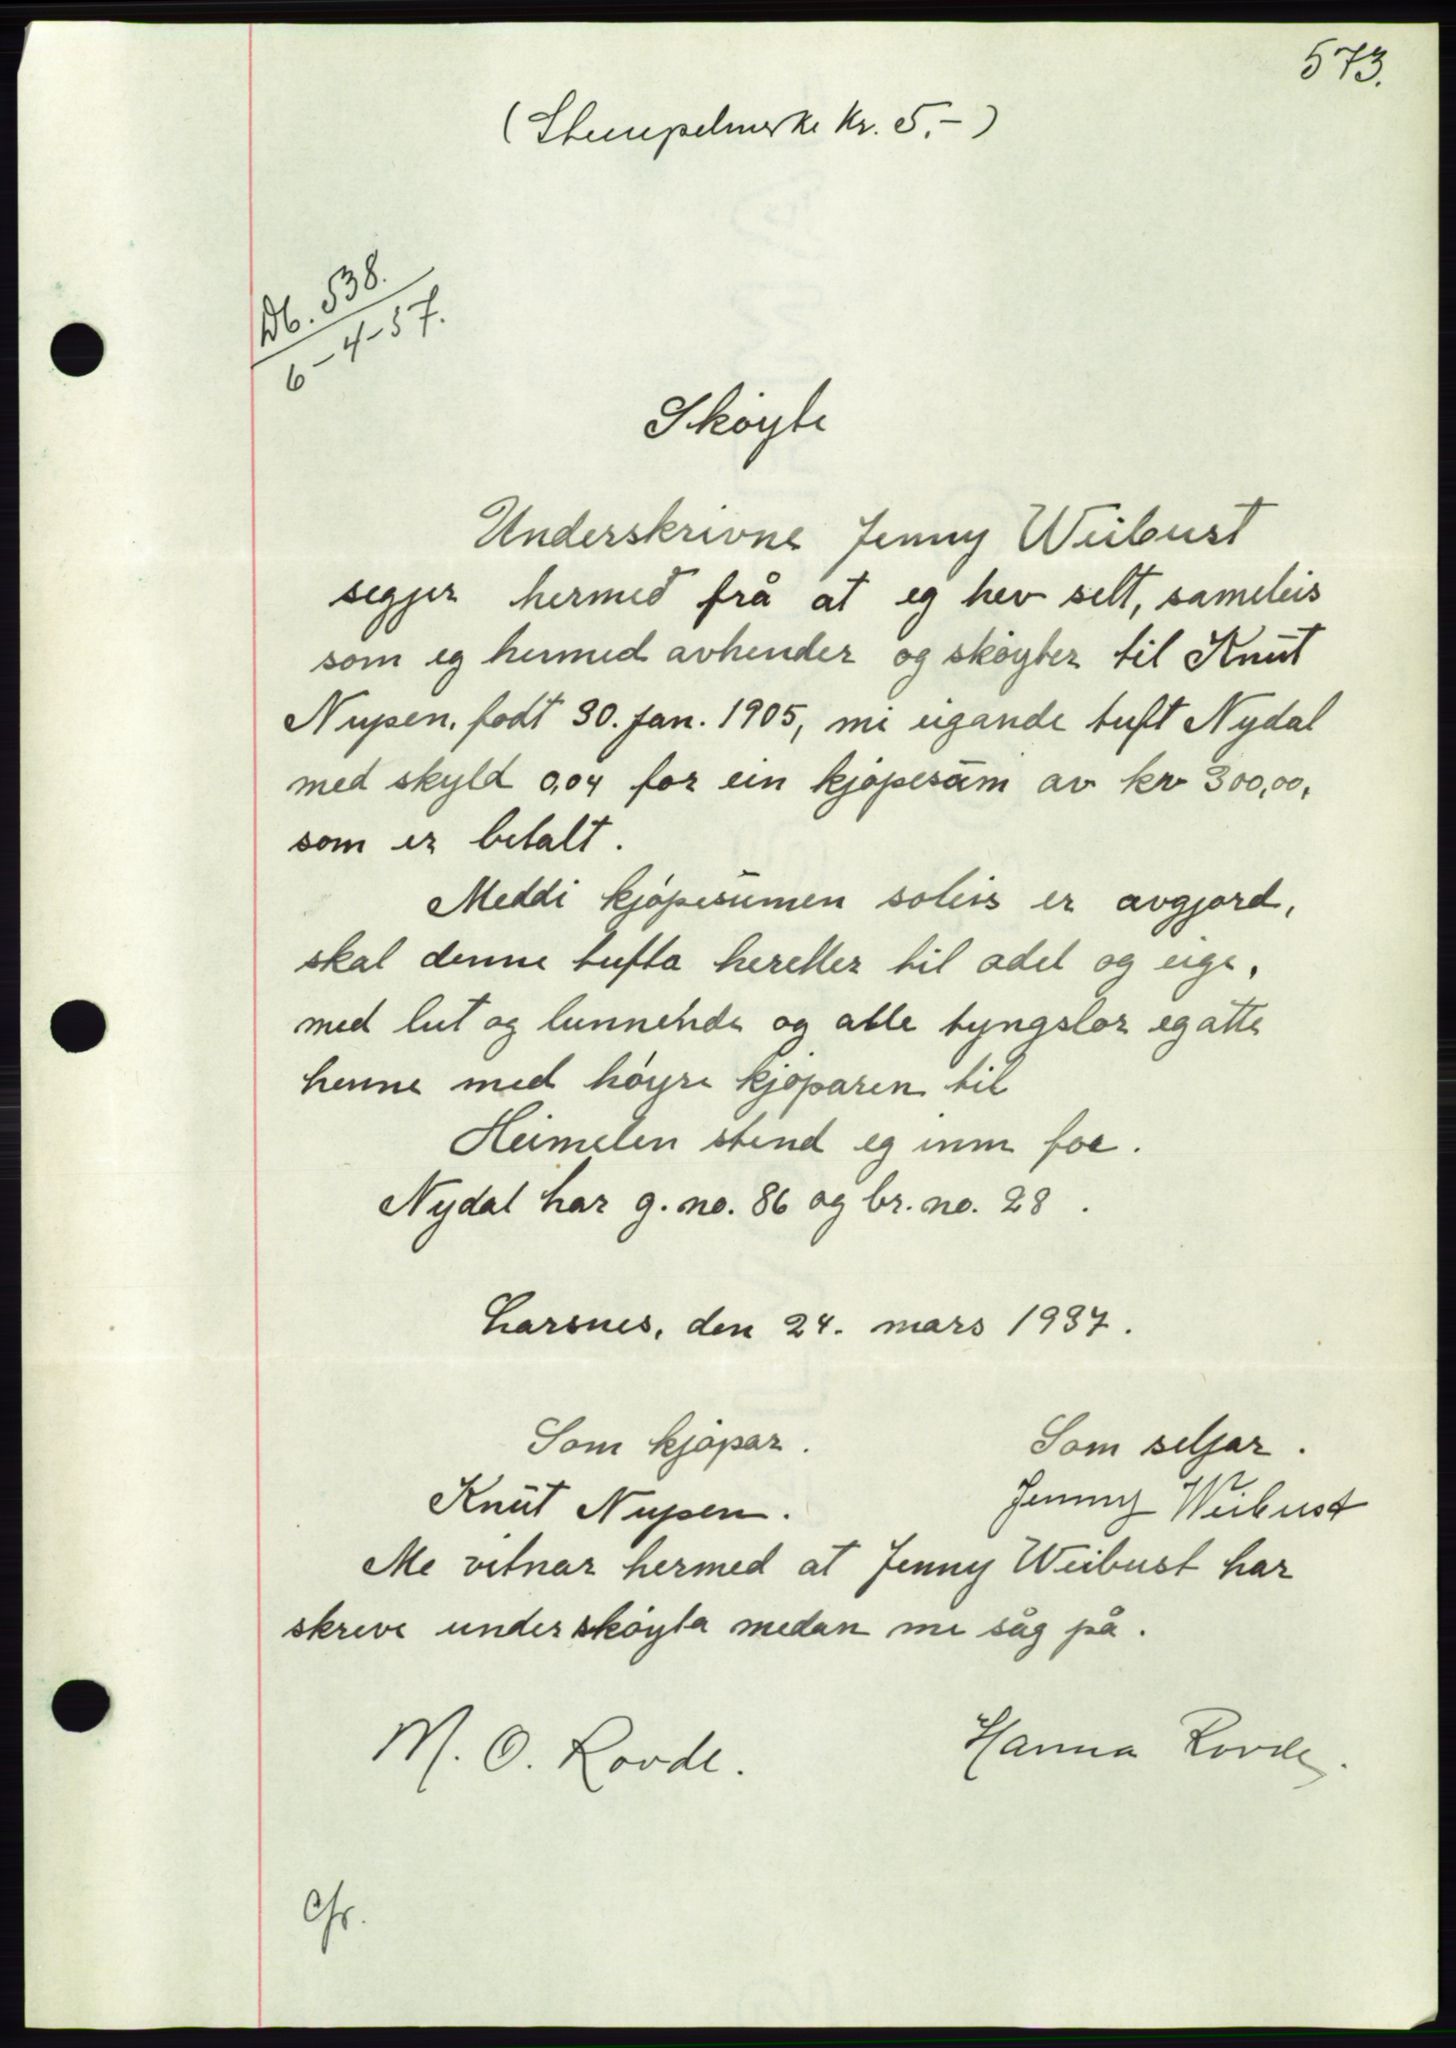 573.
(Stempelmerke kr. 5.-)
Db. 538.
6-4-37.
Skøyte
Underskrivne Jenny Weibust
segjer hermed frå at eg hev selt, sameleis
som eg hermed avhender og skøyter til Knut
Nupen, født 30. jan. 1905, mi eigande tuft Nydal
med skyld 0,04 for ein kjøpesum av kr 300,00,
som er betalt.
Meddi kjøpesumen soleis er avgjord,
skal denne tufta heretter til odel og eige,
med lut og lunnende og alle tyngslor eg åtte
henne med høyre kjøparen til
Heimelen stend eg inne for.
Nydal har g. no. 86 og br. no. 28.
Larsnes, den 24. mars 1937.
Som kjøpar. Som seljar.
Knut Nupen. Jenny Weibust
Me vitnar hermed at Jenny Weibust har
skreve under skøyta medan me såg på.
M. O. Rovde. Hanna Rovde.